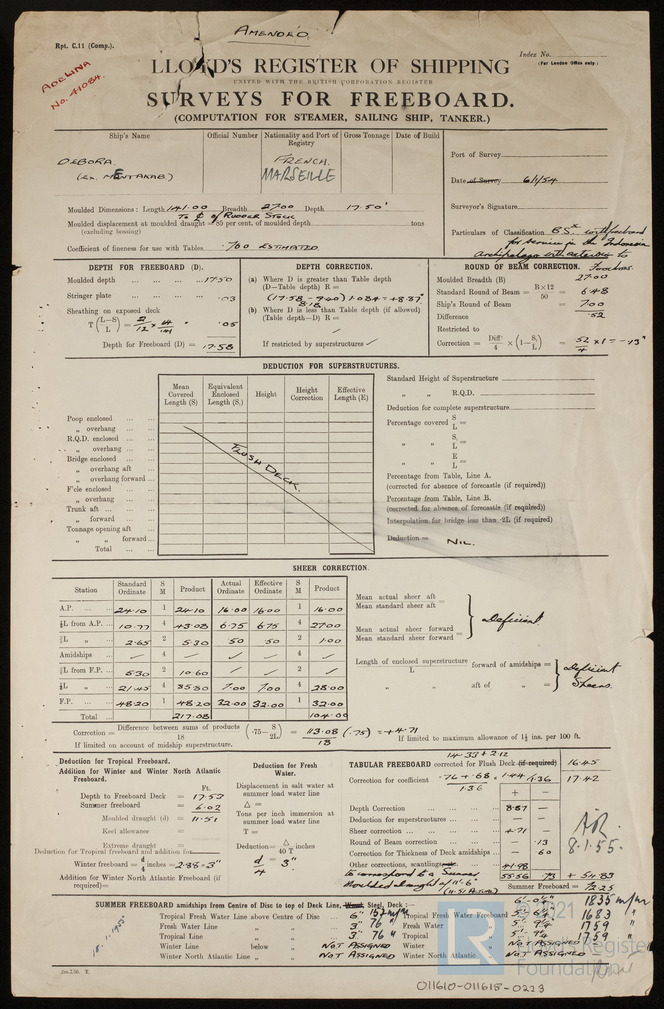 AMENDED.
Rpt. C.11 (Comp.).
Index No.
(For London Office only.)
ADELINA
No. 41084.
LLOYD'S REGISTER OF SHIPPING
UNITED WITH THE BRITISH CORPORATION REGISTER
SURVEYS FOR FREEBOARD.
(COMPUTATION FOR STEAMER, SAILING SHIP, TANKER.)
Ship's Name
Official Number
Nationality and Port of Registry
Gross Tonnage
Date of Build
Port of Survey
DEBORA.
(ex. MENTAKAB)
FRENCH.
MARSEILLE
Date of Survey 6/1/54
Surveyor's Signature
Moulded Dimensions: Length 141.00 Breadth 27.00 Depth 17.50'
To ₵ of Rudder Stock
Moulded displacement at moulded draught = 85 per cent. of moulded depth tons
(excluding bossing)
Coefficient of fineness for use with Tables. .700 ESTIMATED
Particulars of Classification BS* with freeboard
for service in the Indonesian
Archipelago with extension to
DEPTH FOR FREEBOARD (D).
Moulded depth 17.50
Stringer plate .03
Sheathing on exposed deck
T (L-S)/L = .05
Depth for Freeboard (D) = 17.58
DEPTH CORRECTION.
(a) Where D is greater than Table depth
(D—Table depth) R =
(17.58 - 9.40) 1.084 = +8.87"
8.18
(b) Where D is less than Table depth (if allowed)
(Table depth—D) R =
If restricted by superstructures ✓
ROUND OF BEAM CORRECTION.
Moulded Breadth (B) 27.00
Standard Round of Beam = B×12/50 = 6.48
Ship's Round of Beam = 7.00
Difference .52
Restricted to
Correction = Diff/4 × (1 - S/L) = .52/4 × 1 = -.13"
DEDUCTION FOR SUPERSTRUCTURES.
Mean Covered Length (S)
Equivalent Enclosed Length (S₁)
Height
Height Correction
Effective Length (E)
Poop enclosed
„ overhang
R.Q.D. enclosed
„ overhang
Bridge enclosed
„ overhang aft
„ overhang forward
F'cle enclosed
„ overhang
Trunk aft
„ forward
Tonnage opening aft
„ „ forward
Total
FLUSH DECK.
Standard Height of Superstructure
„ „ R.Q.D.
Deduction for complete superstructure
Percentage covered S/L =
„ „ S₁/L =
„ „ E/L =
Percentage from Table, Line A.
(corrected for absence of forecastle (if required))
Percentage from Table, Line B.
(corrected for absence of forecastle (if required))
Interpolation for bridge less than ·2L (if required)
Deduction = NIL.
SHEER CORRECTION.
Station
Standard Ordinate
S M
Product
Actual Ordinate
Effective Ordinate
S M
Product
A.P. 24.10 1 24.10 16.00 16.00 1 16.00
⅙L from A.P. 10.77 4 43.08 6.75 6.75 4 27.00
⅓L „ 2.65 2 5.30 .50 .50 2 1.00
Amidships — 4 — ✓ ✓ 4 ✓
⅓L from F.P. 5.30 2 10.60 ✓ ✓ 2 ✓
⅙L „ 21.45 4 85.80 7.00 7.00 4 28.00
F.P. 48.20 1 48.20 32.00 32.00 1 32.00
Total 217.08 104.00
Mean actual sheer aft
Mean standard sheer aft =
Mean actual sheer forward
Mean standard sheer forward =
Deficient
Length of enclosed superstructure forward of amidships =
L
„ aft of „ =
Deficient
Sheers.
Correction = Difference between sums of products/18 (·75 - S/2L) = 113.08/18 (.75) = +4.71
If limited on account of midship superstructure.
If limited to maximum allowance of 1½ ins. per 100 ft.
Deduction for Tropical Freeboard.
Addition for Winter and Winter North Atlantic Freeboard.
Ft.
Depth to Freeboard Deck = 17.53
Summer freeboard = 6.02
Moulded draught (d) = 11.51
Keel allowance =
Extreme draught =
Deduction for Tropical freeboard and addition for
Winter freeboard = d/4 inches = 2.88 = 3"
Addition for Winter North Atlantic Freeboard (if required) =
Deduction for Fresh Water.
Displacement in salt water at summer load water line
△ =
Tons per inch immersion at summer load water line
T =
Deduction = △/40 T inches
d/4 = 3"
14.33 + 2.12
TABULAR FREEBOARD corrected for Flush Deck (if required) 16.45
Correction for coefficient .76 + .68 / 1.36 = 1.44/1.36 17.42
+ —
Depth Correction 8.87 —
Deduction for superstructures — —
Sheer correction 4.71
Round of Beam correction — .13
Correction for Thickness of Deck amidships — .60
Other corrections, scantlings 41.98
to correspond to a Summer
Moulded draught of 11'-6"
(11.51 ACTUAL)
55.56 .73 + 54.83
Summer Freeboard = 72.25
8.1.55.
SUMMER FREEBOARD amidships from Centre of Disc to top of Deck Line, Wood, Steel, Deck :— 6'-0¼" 1835 m/m
Tropical Fresh Water Line above Centre of Disc 6" 152 m/m Tropical Fresh Water Freeboard 5'-6¼" 1683 "
Fresh Water Line „ „ 3" 76 " Fresh Water „ 5'-9¼" 1759 "
Tropical Line „ „ 3" 76 " Tropical „ 5'-9¼" 1759 "
Winter Line below „ NOT ASSIGNED Winter „ NOT ASSIGNED
Winter North Atlantic Line „ „ NOT ASSIGNED Winter North Atlantic „ NOT ASSIGNED
18.1.1955
© 2021
Lloyd's Register
Foundation
011610-011615-0223